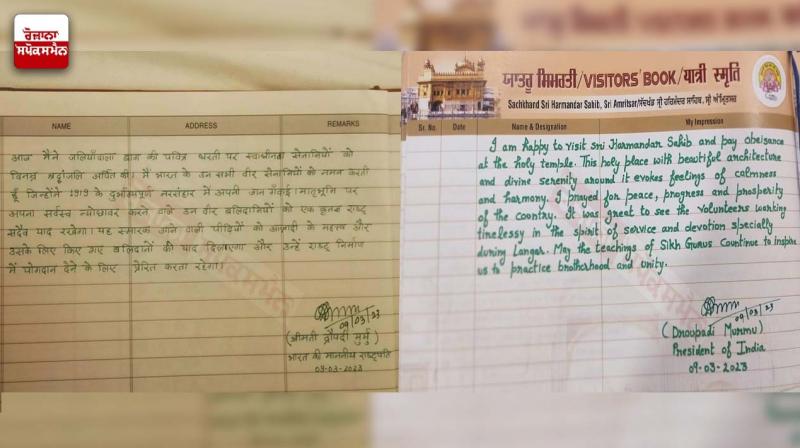 ਰੋਜ਼ਾਨਾ
ਸਪੋਕਸਮੈਨ
NAME ADDRESS REMARKS
आज मैंने जलियाँवाला बाग की पवित्र धरती पर स्वाधीनता सेनानियों को
विनम्र श्रद्धांजलि अर्पित की। मैं भारत के उन सभी वीर सेनानियों को नमन करती
हूँ जिन्होंने 1919 के दुर्भाग्यपूर्ण नरसंहार में अपनी जान गँवाई। मातृभूमि पर
अपना सर्वस्व न्योछावर करने वाले उन वीर बलिदानियों को एक कृतज्ञ राष्ट्र
सदैव याद रखेगा। यह स्मारक आने वाली पीढ़ियों को आज़ादी के महत्व और
उसके लिए किए गए बलिदानों की याद दिलाएगा और उन्हें राष्ट्र निर्माण
में योगदान देने के लिए प्रेरित करता रहेगा।
09/03/23
(श्रीमती द्रौपदी मुर्मु)
भारत की माननीय राष्ट्रपति
09-03-2023
ਯਾਤਰੂ ਸਿਮਰਤੀ/VISITORS' BOOK/यात्री स्मृति
Sachkhand Sri Harmandar Sahib, Sri Amritsar/ਸੱਚਖੰਡ ਸ੍ਰੀ ਹਰਿਮੰਦਰ ਸਾਹਿਬ, ਸ੍ਰੀ ਅੰਮ੍ਰਿਤਸਰ
Sr. No. Date Name & Designation My Impression
I am happy to visit Sri Harmandar Sahib and pay obeisance
at the holy temple. This holy place with beautiful architecture
and divine serenity around it evokes feelings of calmness
and harmony. I prayed for peace, progress and prosperity
of the country. It was great to see the volunteers working
tirelessly in the spirit of service and devotion specially
during Langar. May the teachings of Sikh Gurus Countinue to inspire
us to practice brotherhood and unity.
09/03/23
(Droupadi Murmu)
President of India
09-03-2023